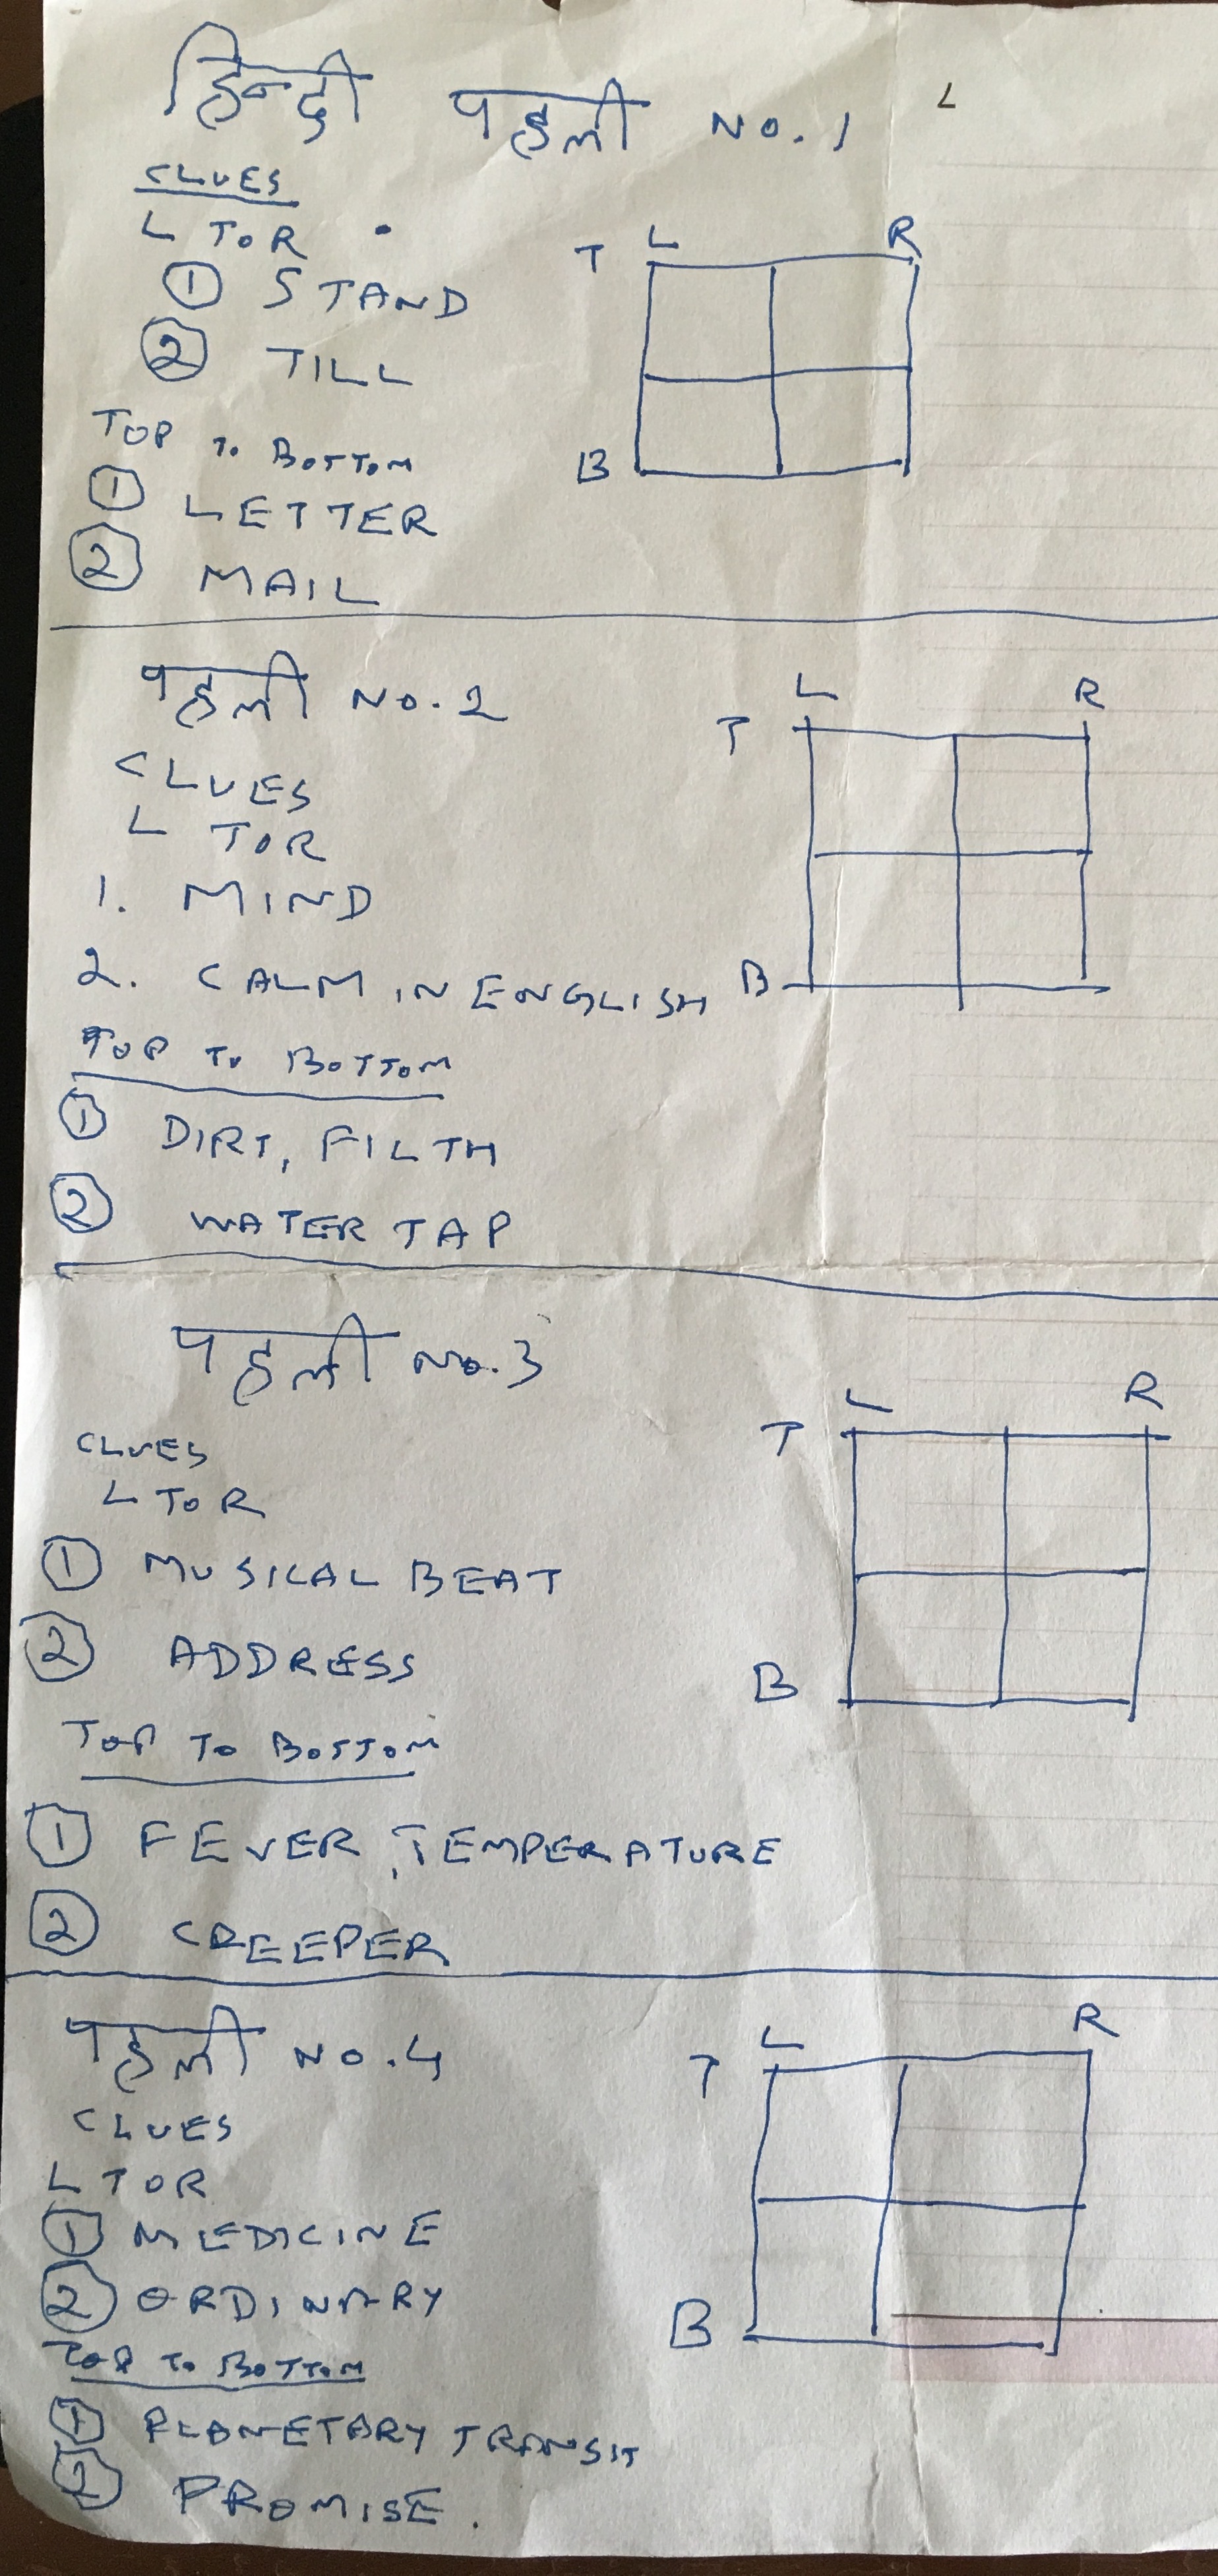 हिन्दी पहली NO. 1
L
CLUES
L TO R
① STAND
② TILL
TOP TO BOTTOM
① LETTER
② MAIL
T L R
B
पहली NO. 2
CLUES
L TO R
1. MIND
2. CALM IN ENGLISH
TOP TO BOTTOM
① DIRT, FILTH
② WATER TAP
T L R
B
पहली NO. 3
CLUES
L TO R
① MUSICAL BEAT
② ADDRESS
TOP TO BOTTOM
① FEVER, TEMPERATURE
② CREEPER
T L R
B
पहली NO. 4
CLUES
L TO R
① MEDICINE
② ORDINARY
TOP TO BOTTOM
① PLANETARY TRANSIT
② PROMISE.
T L R
B